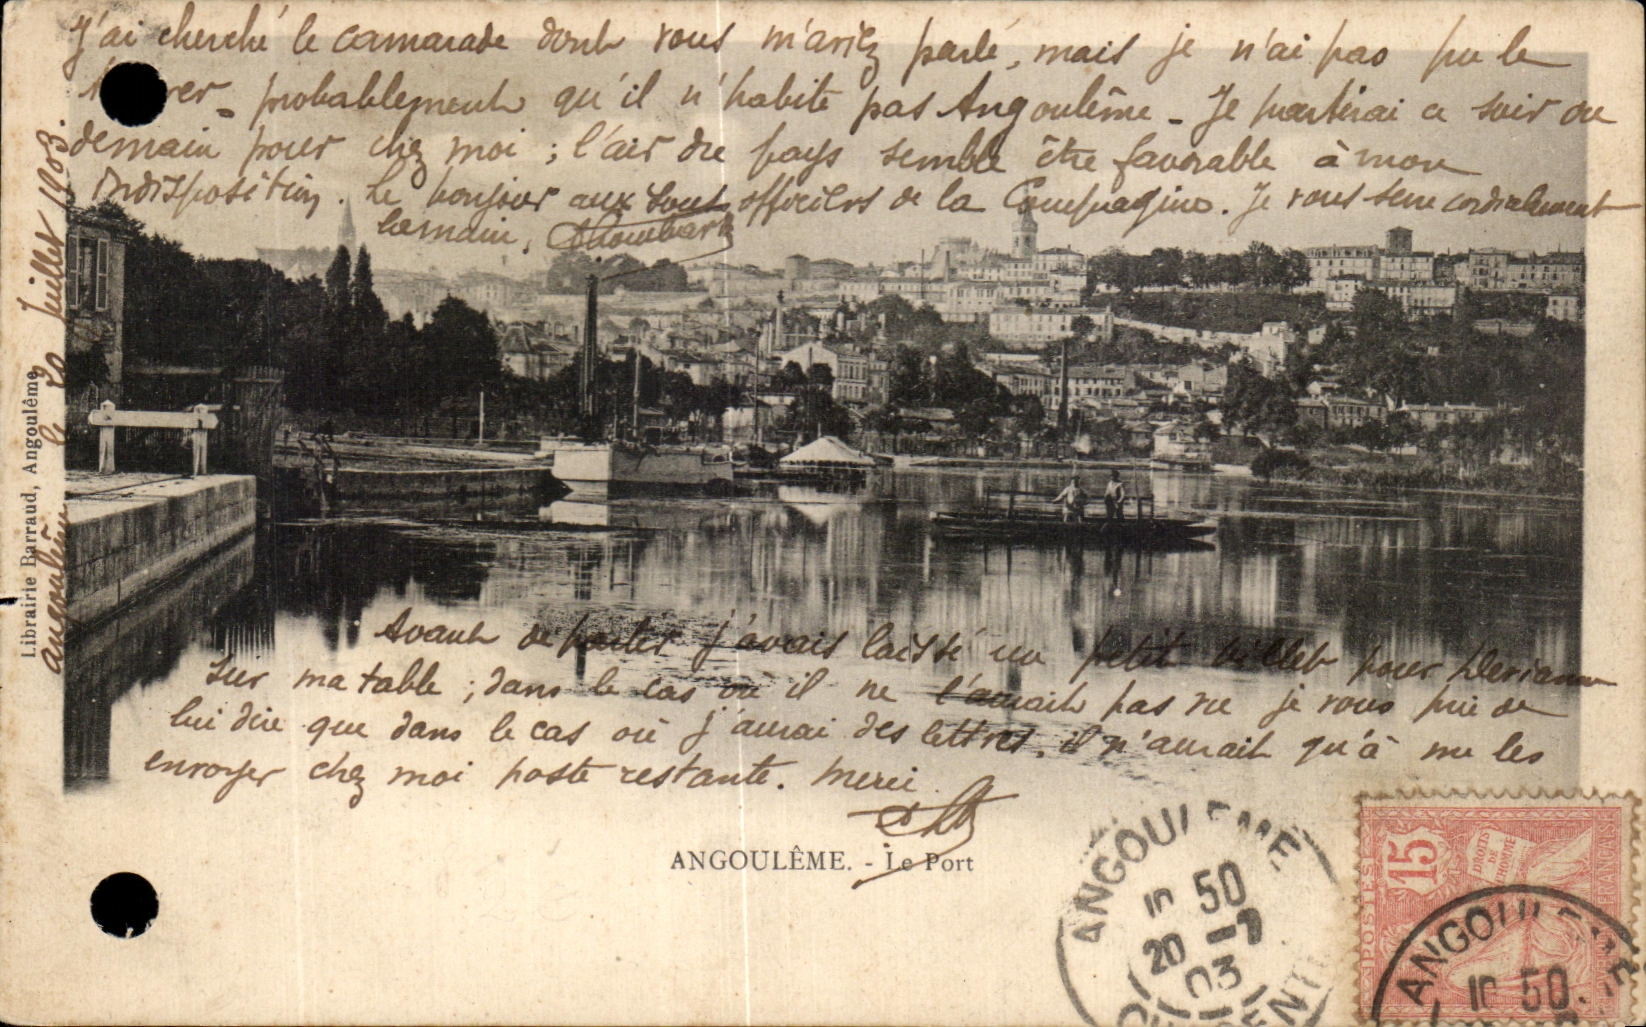 J'ai cherché le camarade dont vous m'aviez parlé, mais je n'ai pas pu le
probablement qu'il n'habite pas Angoulême - Je partirai ce soir ou
demain pour chez moi ; l'air du pays semble être favorable à mon
indisposition. Le bonjour aux sous officiers de la Compagnie. Je vous serre cordialement
la main,
Angoulême le 20 Juillet 1903.
Librairie Barraud, Angoulême
Avant de partir j'avais laissé un petit billet pour
sur ma table ; dans le cas où il ne l'aurait pas vu je vous prie de
lui dire que dans le cas où j'aurai des lettres, il n'aurait qu'à me les
envoyer chez moi poste restante. Merci
ANGOULÊME. - Le Port
ANGOULEME
10 50
20 -7
03
CHARENTE
POSTES
15
DROITS
DE
L'HOMME
ANGOULEME
10 50